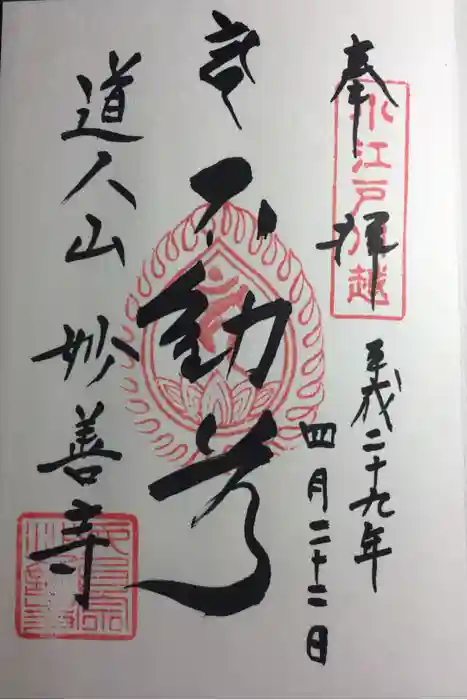 奉拝
小江戸川越
平成二十九年
四月二十二日
不動尊
道人山 妙善寺